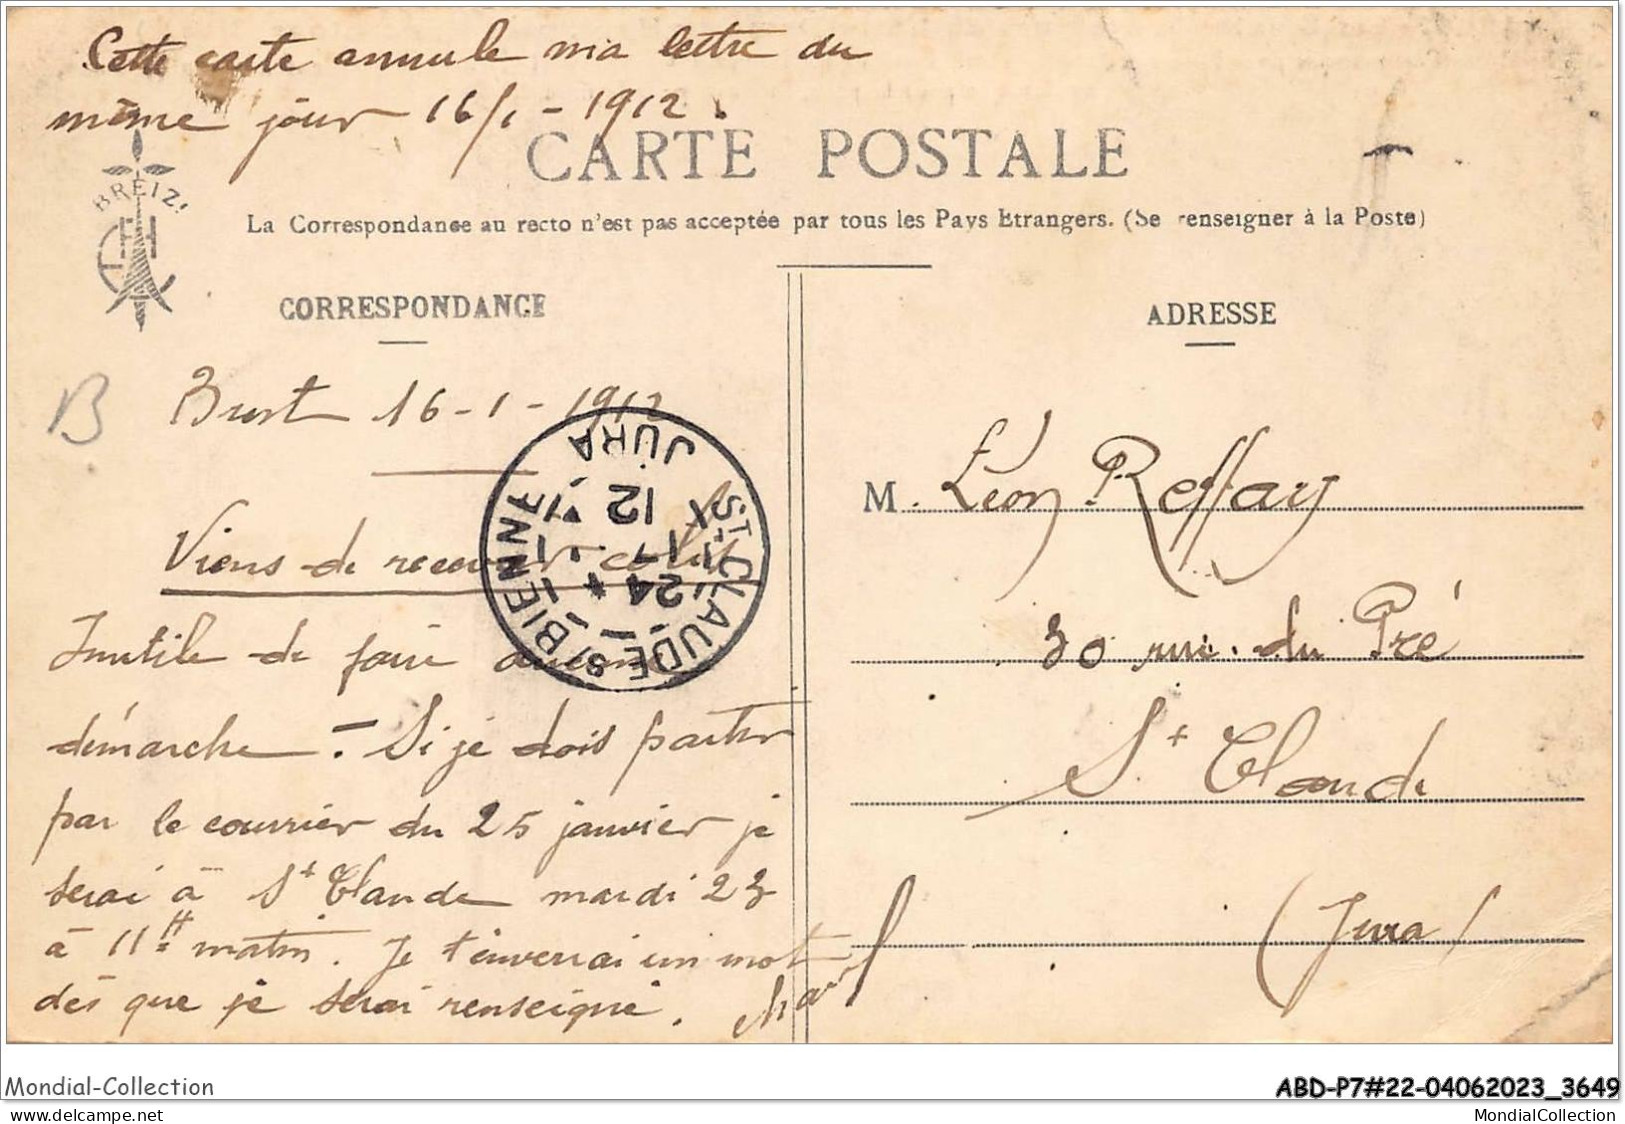 Cette carte annule ma lettre du
même jour 16/1 - 1912.
CARTE POSTALE
BREIZ!
La Correspondance au recto n'est pas acceptée par tous les Pays Etrangers. (Se renseigner à la Poste)
CORRESPONDANCE
B
Brest 16-1-1912
Viens de recevoir colis
Inutile de faire aucune
démarche - Si je dois partir
par le courrier du 25 janvier je
serai à St Claude mardi 23
à 11H matin. Je t'enverrai un mot
dès que je serai renseigné.
ST-CLAUDE S/BIENNE
24 - 1
12
JURA
ADRESSE
M. Léon Reffay
30 rue du Pré
St Claude
(Jura)
Mondial-Collection
ABD-P7#22-04062023_3649
delcampe.net
MondialCollection